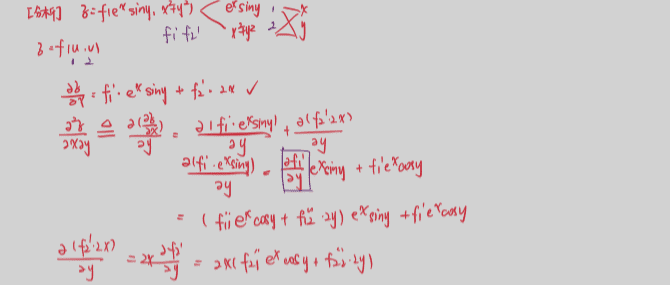 [分析] z=f(e^x siny, x²+y²) < e^x siny 1 x
x²+y² 2 y
f₁' f₂'
z=f(u,v)
1 2
∂z/∂x = f₁'·e^x siny + f₂'·2x ✓
∂²z/∂x∂y ≜ ∂(∂z/∂x)/∂y = ∂(f₁'·e^x siny)/∂y + ∂(f₂'·2x)/∂y
∂(f₁'·e^x siny)/∂y = ∂f₁'/∂y e^x siny + f₁'e^x cosy
= (f₁₁''e^x cosy + f₁₂''·2y) e^x siny + f₁'e^x cosy
∂(f₂'·2x)/∂y = 2x ∂f₂'/∂y = 2x(f₂₁''e^x cosy + f₂₂''·2y)